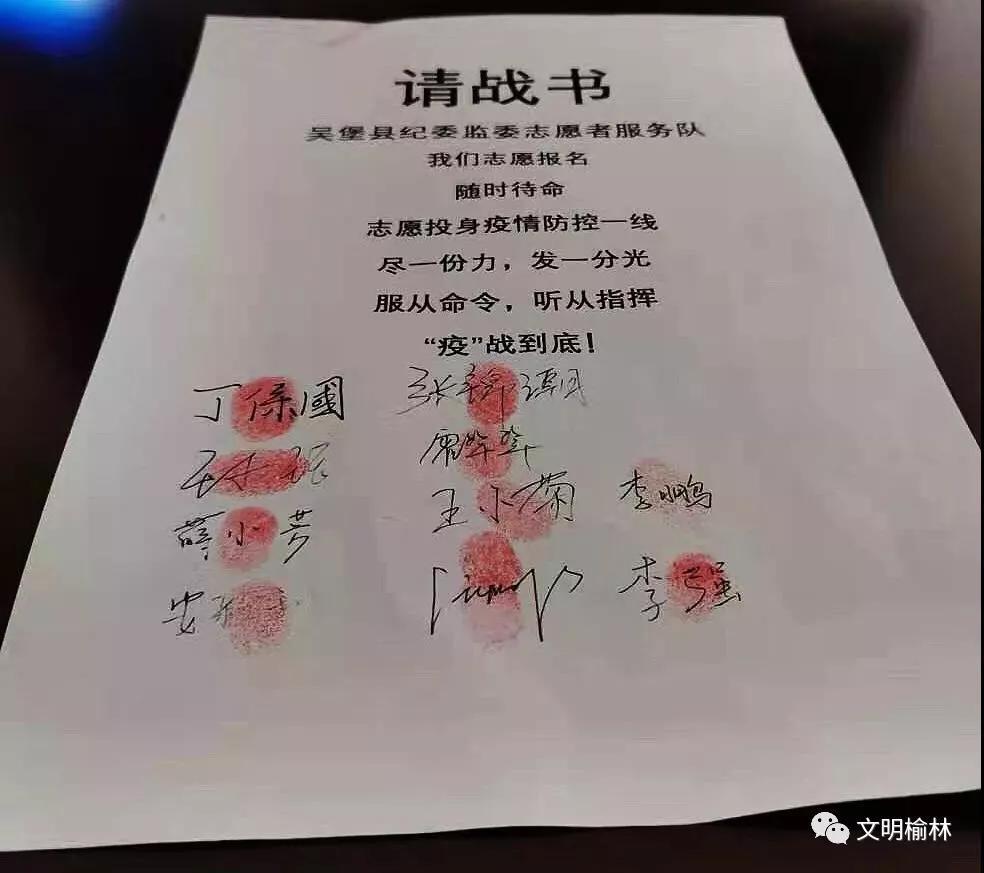 请战书
吴堡县纪委监委志愿者服务队
我们志愿报名
随时待命
志愿投身疫情防控一线
尽一份力，发一分光
服从命令，听从指挥
“疫”战到底！
丁保國
王小菊 李鹏
薛小芳
李强
文明榆林